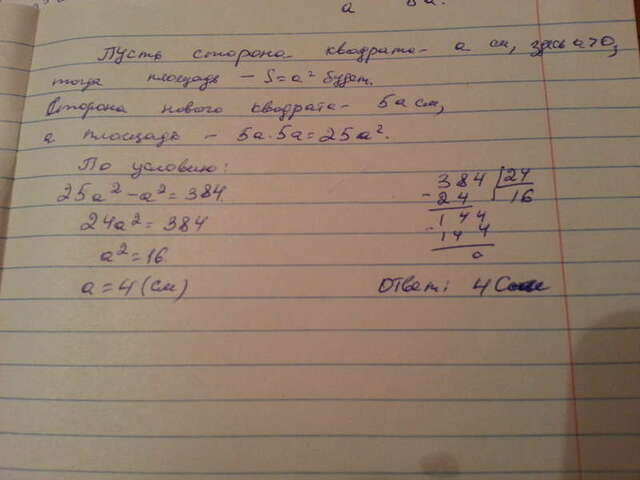 a 5a.
Пусть сторона квадрата - a см, здесь a>0,
тогда площадь - S=a² будет.
Сторона нового квадрата - 5a см,
а площадь - 5a·5a=25a².
По условию:
25a²-a²=384.
24a²=384
a²=16.
a=4(см)
384 24
-24 16
144
-144
0
Ответ: 4 см